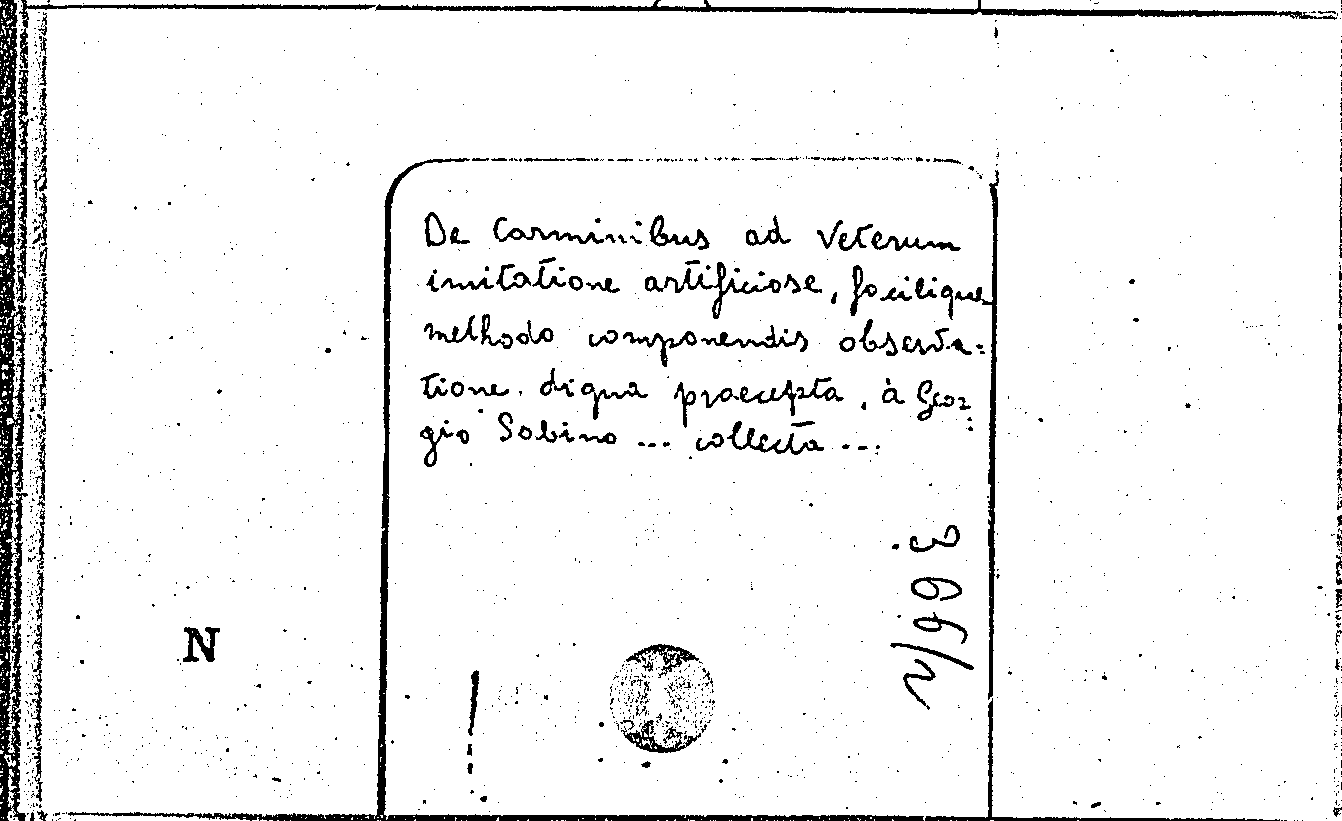 De Carminibus ad Veterum
imitatione artificiose, facilique
methodo componendis observa=
tione. digna praecepta, à Geor=
gio Sabino ... collecta ...
366/2
N